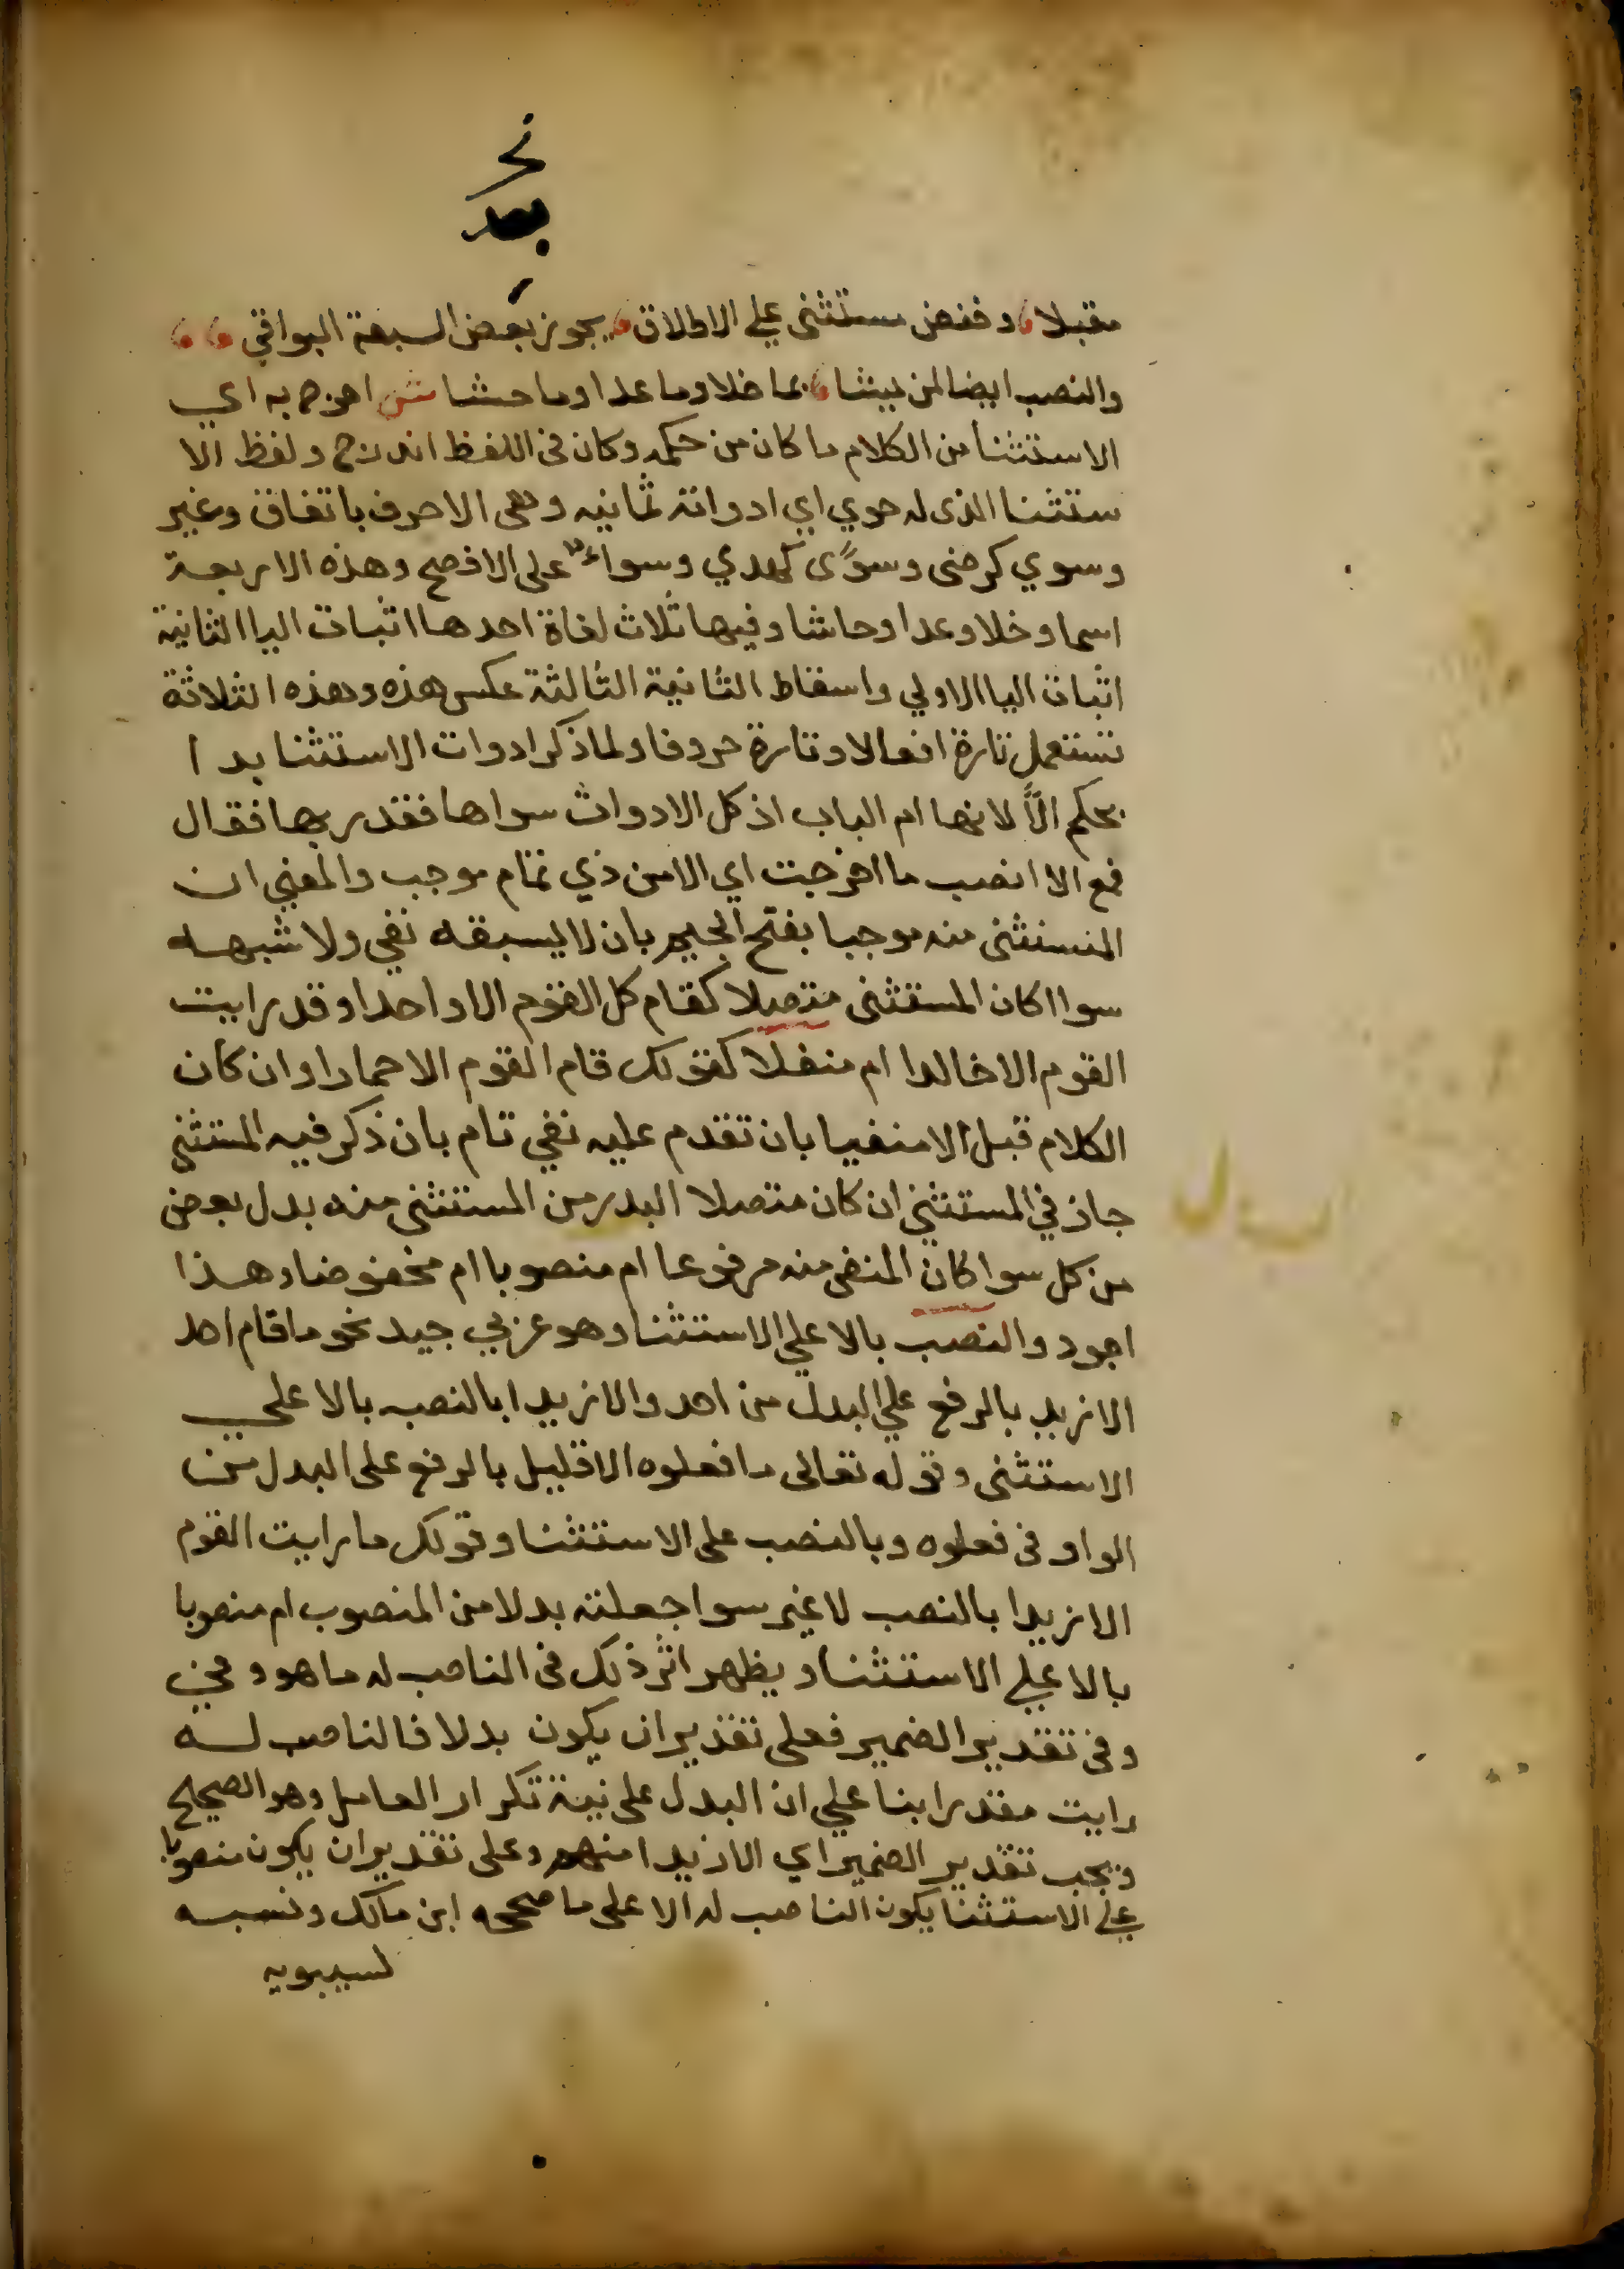 نحو
بعد
مقبلا، وخفض مستثنى علي الاطلاق، يجوز بعض السبعة البواقي
والنصب ايضا لمن يشا، بما خلا وما عدا وما حشا ش اخرج به اي
الاستثنا من الكلام ما كان من حكمه وكان في اللفظ اندرج ولفظ الا
ستثنا الذى له حوي اي ادواته ثمانيه وهى الا حرف باتفاق وغير
وسوي كرضى وسوًى كهدي وسواء على الافصح وهذه الاربعة
اسما وخلا وعدا وحاشا وفيها ثلاث لغاة احدها اثبات اليا الثانية
اثبات اليا الاولي واسقاط الثانية الثالثة عكس هذه وهذه الثلاثة
تستعمل تارة افعالا وتارة حروفا ولما ذكر ادوات الاستثنا بدا
بحكم الاّ لانها ام الباب اذ كل الادوات سواها فقدر بها فقال
فمع الا انصب ما اخرجت اي الا من ذي تمام موجب والمعني ان
المنستثنى منه موجبا بفتح الجيم بان لا يسبقه نفي ولا شبهه
سوا اكان المستثنى متصلا كقام كل القوم الا واحدا وقد رايت
القوم الا خالدا ام منفلا كقولك قام القوم الا حمارا وان كان
الكلام قبل الا منفيا بان تقدم عليه نفي تام بان ذكر فيه المستثنى
جاز في المستثني ان كان متصلا البدل من المستثنى منه بدل بعض
من كل سوا كان المنفى منه مرفوعا ام منصوبا ام مخفوضا وهذا
اجود والنصب بالا علي الاستثنا وهو عزبي جيد نحو ما قام احد
الا زيد بالرفع علي البدل من احد والا زيدا بالنصب بالا علي
الاستثنى وقوله تعالى ما فعلوه الا قليل بالرفع على البدل من
الواو فى فعلوه وبالنصب على الاستثنا وقولك ما رايت القوم
الا زيدا بالنصب لا غير سوا جعلته بدلا من المنصوب ام منصوبا
بالا علي الاستثنا ويظهر اثر ذلك فى الناصب له ما هو وفي
وفى تقدير الضمير فعلى تقدير ان يكون بدلا فالناصب له
رايت مقدرا بنا علي ان البدل على نية تكرار العامل وهو الصحيح
ويجب تقدير الضمير اي الا زيدا منهم وعلى تقدير ان يكون منصوبا
علي الاستثنا يكون الناصب له الا على ما صححه ابن مالك ونسبه
لسيبويه